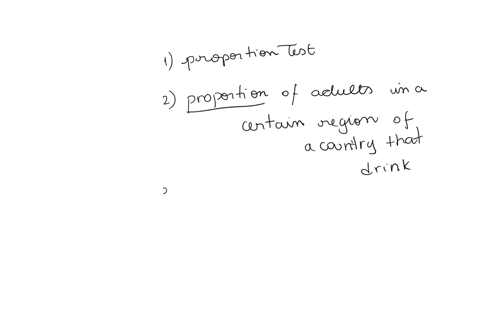 1) proportion Test
2) proportion of adults in a
certain region of
a country that
drink